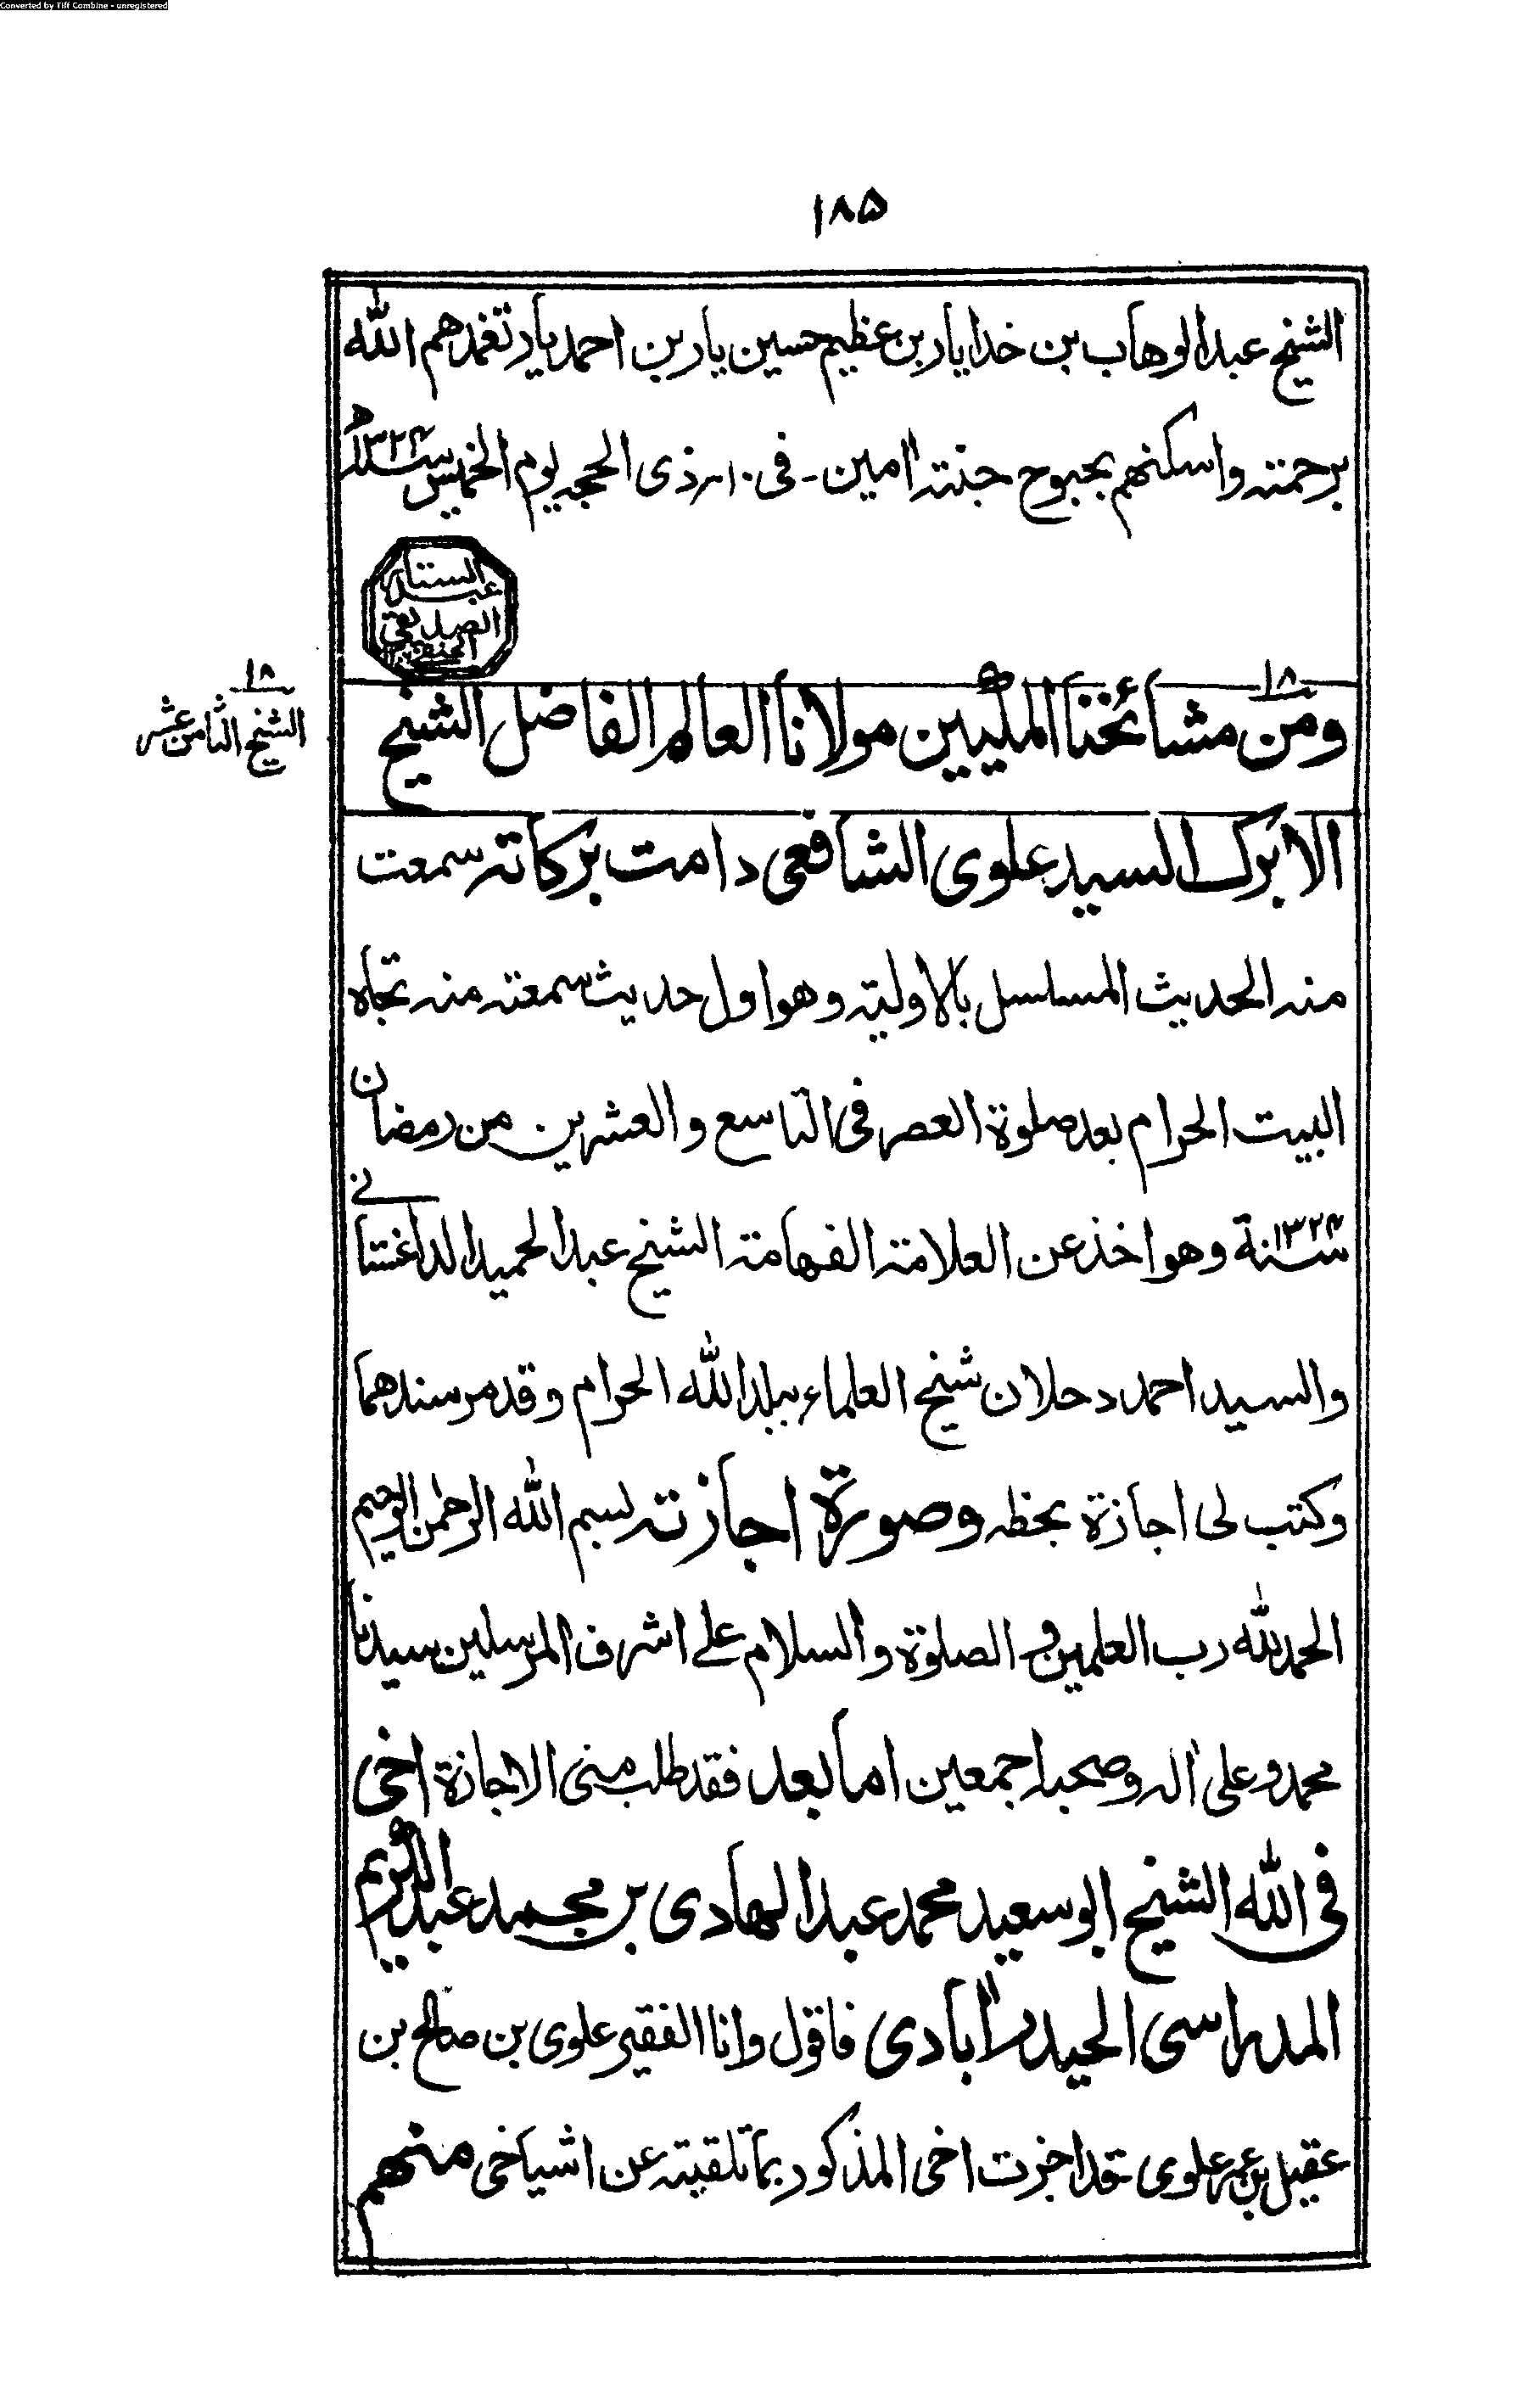 Converted by Tiff Combine - unregistered
۱۸۵
الشیخ عبد الوهاب بن خدا یار بن عظیم حسین یار بن احمد یار تغمدهم الله
برحمته واسکنهم بحبوح جنته اٰمین - فی ۱۰ ذی الحجه یوم الخمیس سنه ۱۳۲۴ه
عبد الستار
الصدیقی
الحنفی
۱۸
الشیخ الثامن عشر
۱۸
ومن مشائخنا المکیین مولانا العالم الفاضل الشیخ
الابرک السید علوی الشافعی دامت برکاته سمعت
منه الحدیث المسلسل بالاولیة وهو اول حدیث سمعته منه تجاه
البیت الحرام بعد صلوة العصر فی التاسع والعشرین من رمضان
سنة ۱۳۲۴ وهو اخذ عن العلامة الفهامة الشیخ عبد الحمید الداغستانی
والسید احمد دحلان شیخ العلماء ببلد الله الحرام وقد مر سندهما
وکتب لی اجازة بخطه وصورة اجازته بسم الله الرحمٰن الرحیم
الحمد لله رب العلمین و الصلوة والسلام علے اشرف المرسلین سیدنا
محمد وعلی اٰله وصحبه اجمعین اما بعد فقد طلب منی الاجازة اخی
فی الله الشیخ ابو سعید محمد عبد الهادی بن محمد عبد الکریم
المدراسی الحیدرآبادی فاقول وانا الفقیر علوی بن صالح بن
عقیل بن عمر علوی قد اجزت اخی المذکور بما تلقیته عن اشیاخی منهم